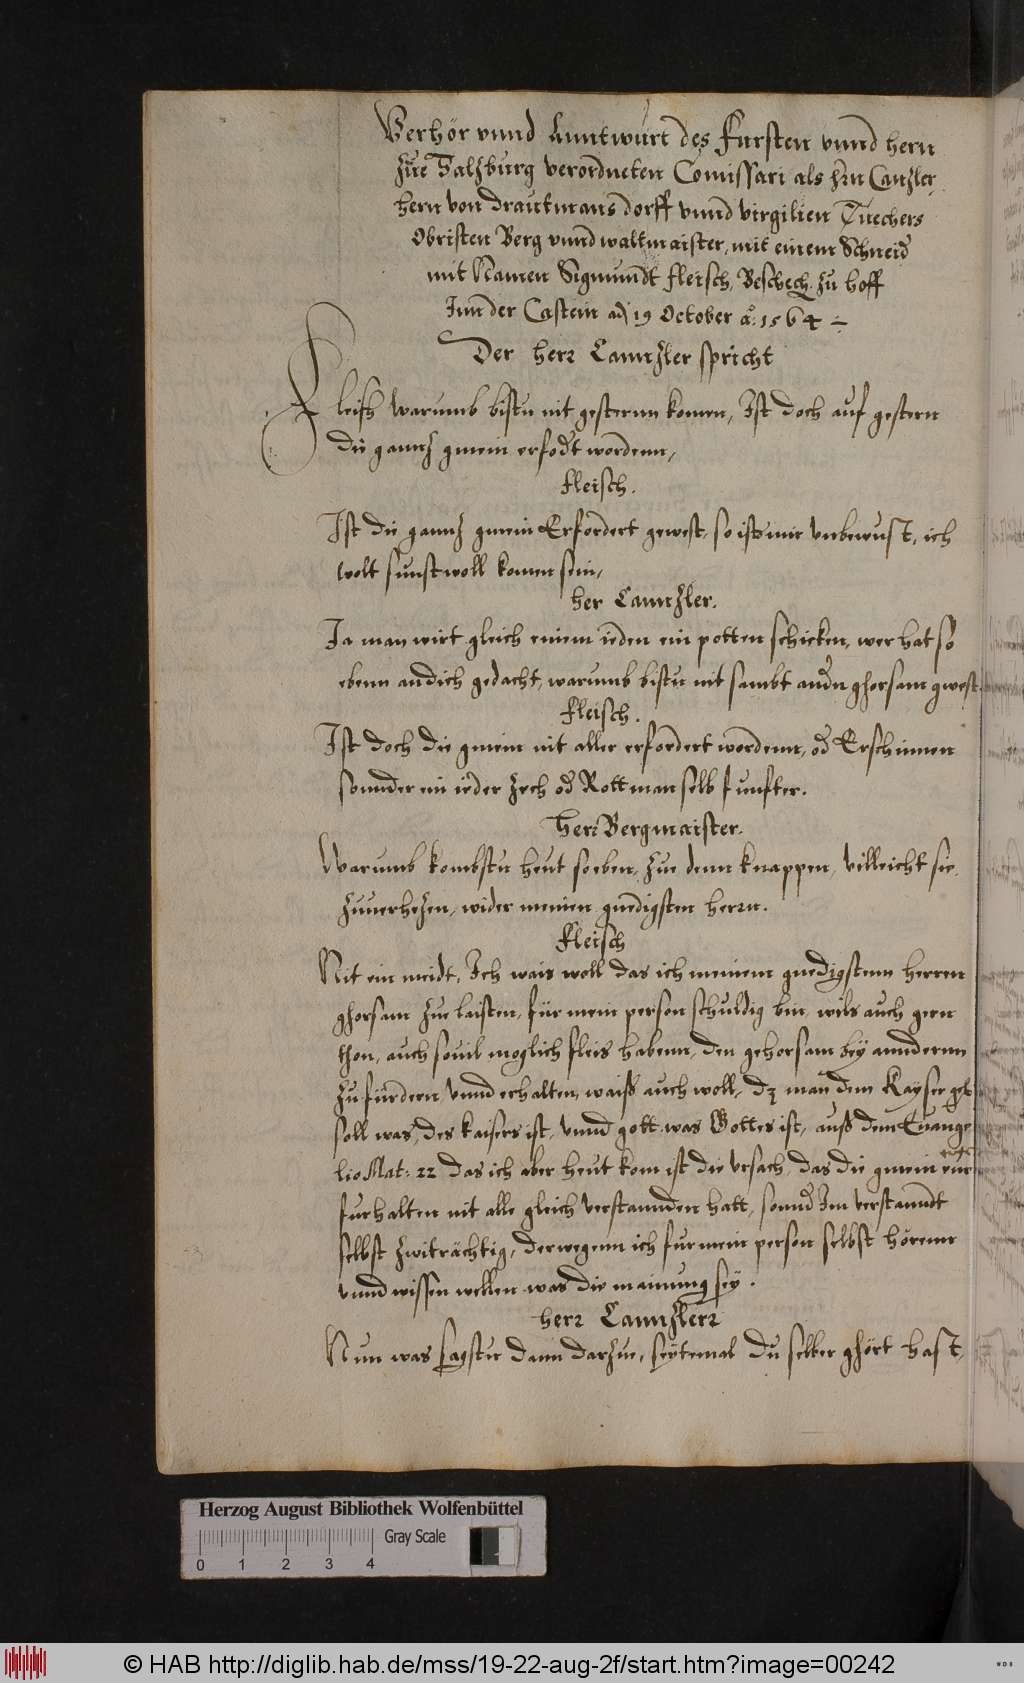 Verhör vnnd Anntwurt des Fursten vnnd hern
Zue Saltzburg verordneten Comissari als hrn Cantzler,
hern von Drautmansdorff vnnd virgilien Tuechers
Obristen Berg vnnd waltmaister, mit einem Schneid
mit Namen Sigmundt fleisch, zu hoff
Inn der Castein adj 19 October aº: 1564 ÷
Der herr Canntzler spricht
Fleisch warumb bistu nit gesternn komen, Ist doch auf gestern
die ganntz gmein erfodt wordenn,
fleisch.
Ist die ganntz gmein Erfordert gewest, so ists mir vnbewust, ich
wolt sunst woll komen sein,
her Canntzler.
Ja man wirt gleich einem ieden ein potten schicken, wer hat so
ebenn an dich gedacht, warumb bistu nit sambt andn ghorsam gwest
fleisch.
Ist doch die gmein nit aller erfordert wordenn, od Erschinnen
sonnder ein ieder Zech od Rottman selb funfter.
herr Bergmaister.
Warumb kombstu heut soeben, zue denn knappen, villeicht sie,
zuuerhetzen, wider meinen gnedigsten herrn.
fleisch
Nit ein meidt, Ich wais woll das ich meinem gnedigstenn herren
ghorsam zue laisten, für mein person schuldig bin, wils auch gern
thon, auch souil moglich fleis habenn, den gehorsam bey anndernn
zu fürdern vnnd erhalten, waiss auch woll, dz man dem Kayser geb
soll was des kaisers ist, vnnd gott was Gottes ist, auss dem Euange
lio Mat: 22 das ich aber heut kom ist die vrsach, das die gmein eur
furhalten nit alle gleich verstannden hatt, sonnd Im verstanndt
selbst zwiträchtig, derwegenn ich fur mein person selbst hörenn
vnnd wissen wellen was die mainung sey.
herr Canntzlerr
Nun was sagstu dann darzue, seytemal du selber ghört hast,
Herzog August Bibliothek Wolfenbüttel
Gray Scale
0 1 2 3 4
© HAB http://diglib.hab.de/mss/19-22-aug-2f/start.htm?image=00242